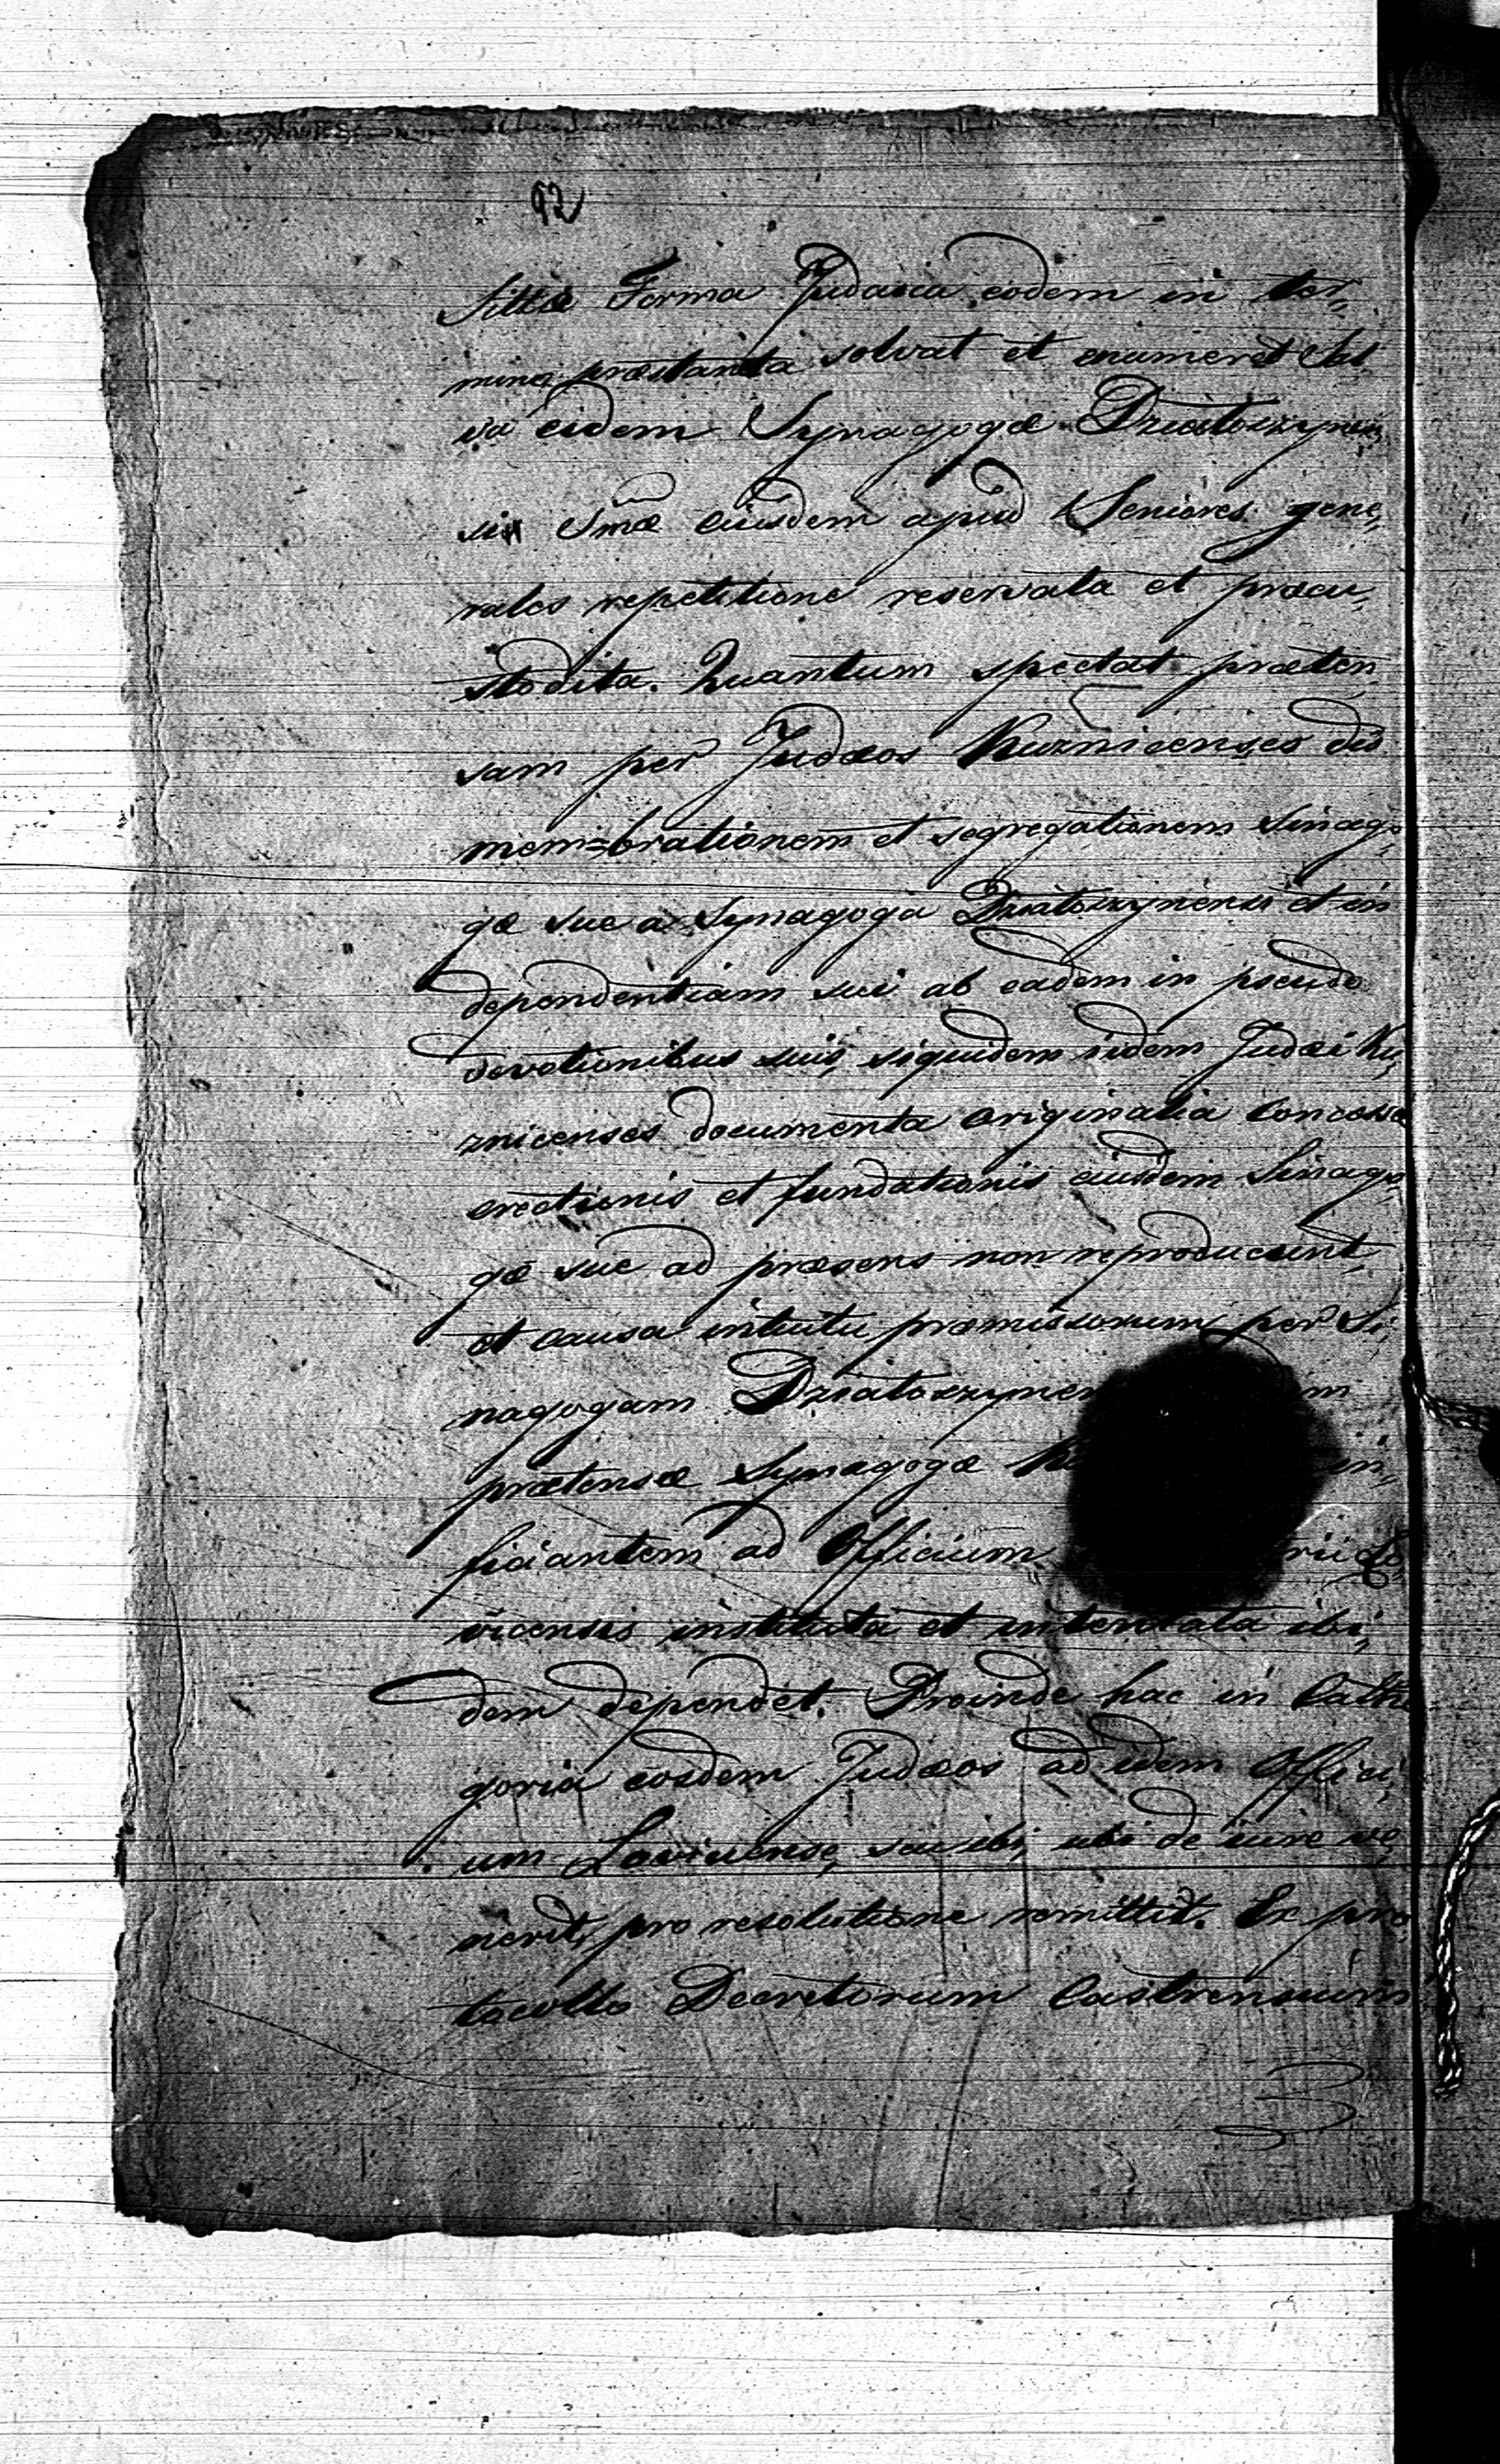 92
Forma Judaica eodem in ter,
mino præstanda solvat et enumeret Sal,
va eidem Synagogæ Dziatoszynen,
sis Smæ eiusdem apud Seniores gene,
rales repetitione reservata et præcu,
stodita. Quantum spectat præten,
sam per Judæos Kuznicenses dis
mem=brationem et segregationem Sinago,
gæ suæ a Synagoga Dziatoszynensi et in
dependentiam sui ab eadem in pseudo
devotionibus suis, siquidem iidem Judæi Ku,
znicenses documenta originalia concessæ
erectionis et fundationis eiusdem Sinago,
gæ suæ ad præsens non reproducunt,
et causa intuitu præmissorum per Si,
nagogam Dziatoszynen
prætensæ Synagogæ in,
ficiantem ad Officium
vicensis instituta et intentata ibi,
dem dependet. Proinde hac in Cathe
goria eosdem Judæos ad idem Offici,
um Lovicense, seu ibi, ubi de iure ve,
nerit, pro resolutione remittit. Ex pro
tocollo Decretorum Castrensium